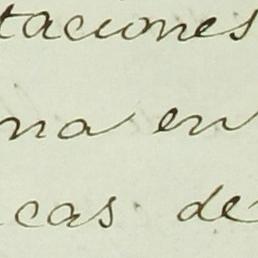 taciones
na en
cas de